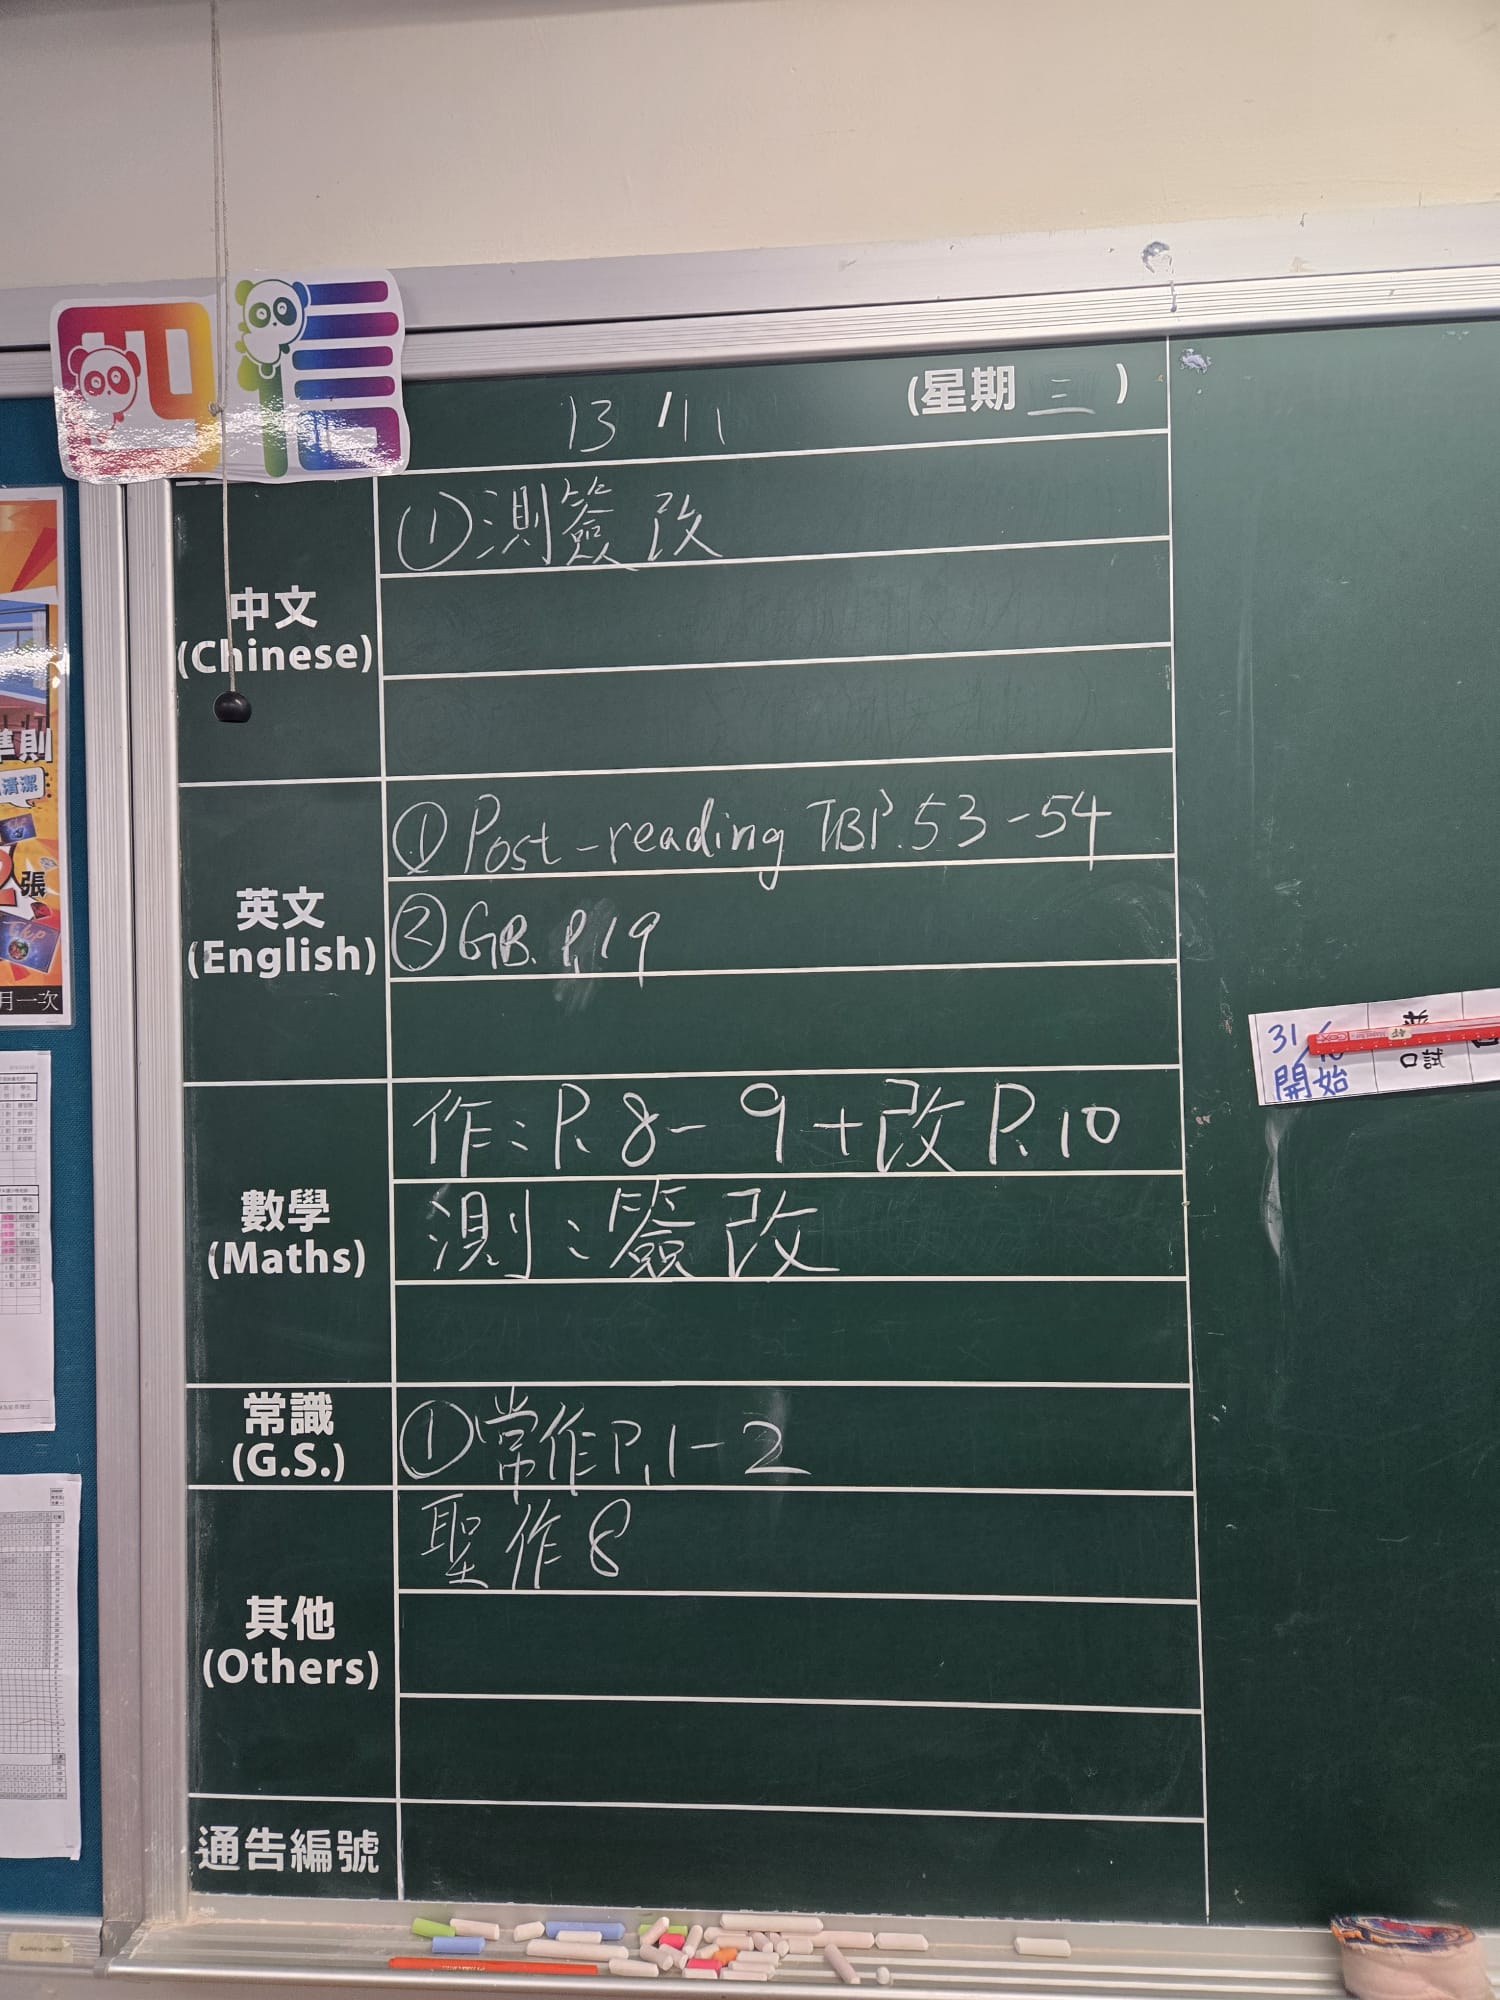 四信
13/11 (星期三)
中文
(Chinese)
①測簽改
英文
(English)
①Post-reading TBP.53-54
②GB. P.19
數學
(Maths)
作：P.8-9+改P.10
測：簽改
常識
(G.S.)
①常作P.1-2
其他
(Others)
聖作8
通告編號
31/10
開始
口試
準則
清潔
張
月一次